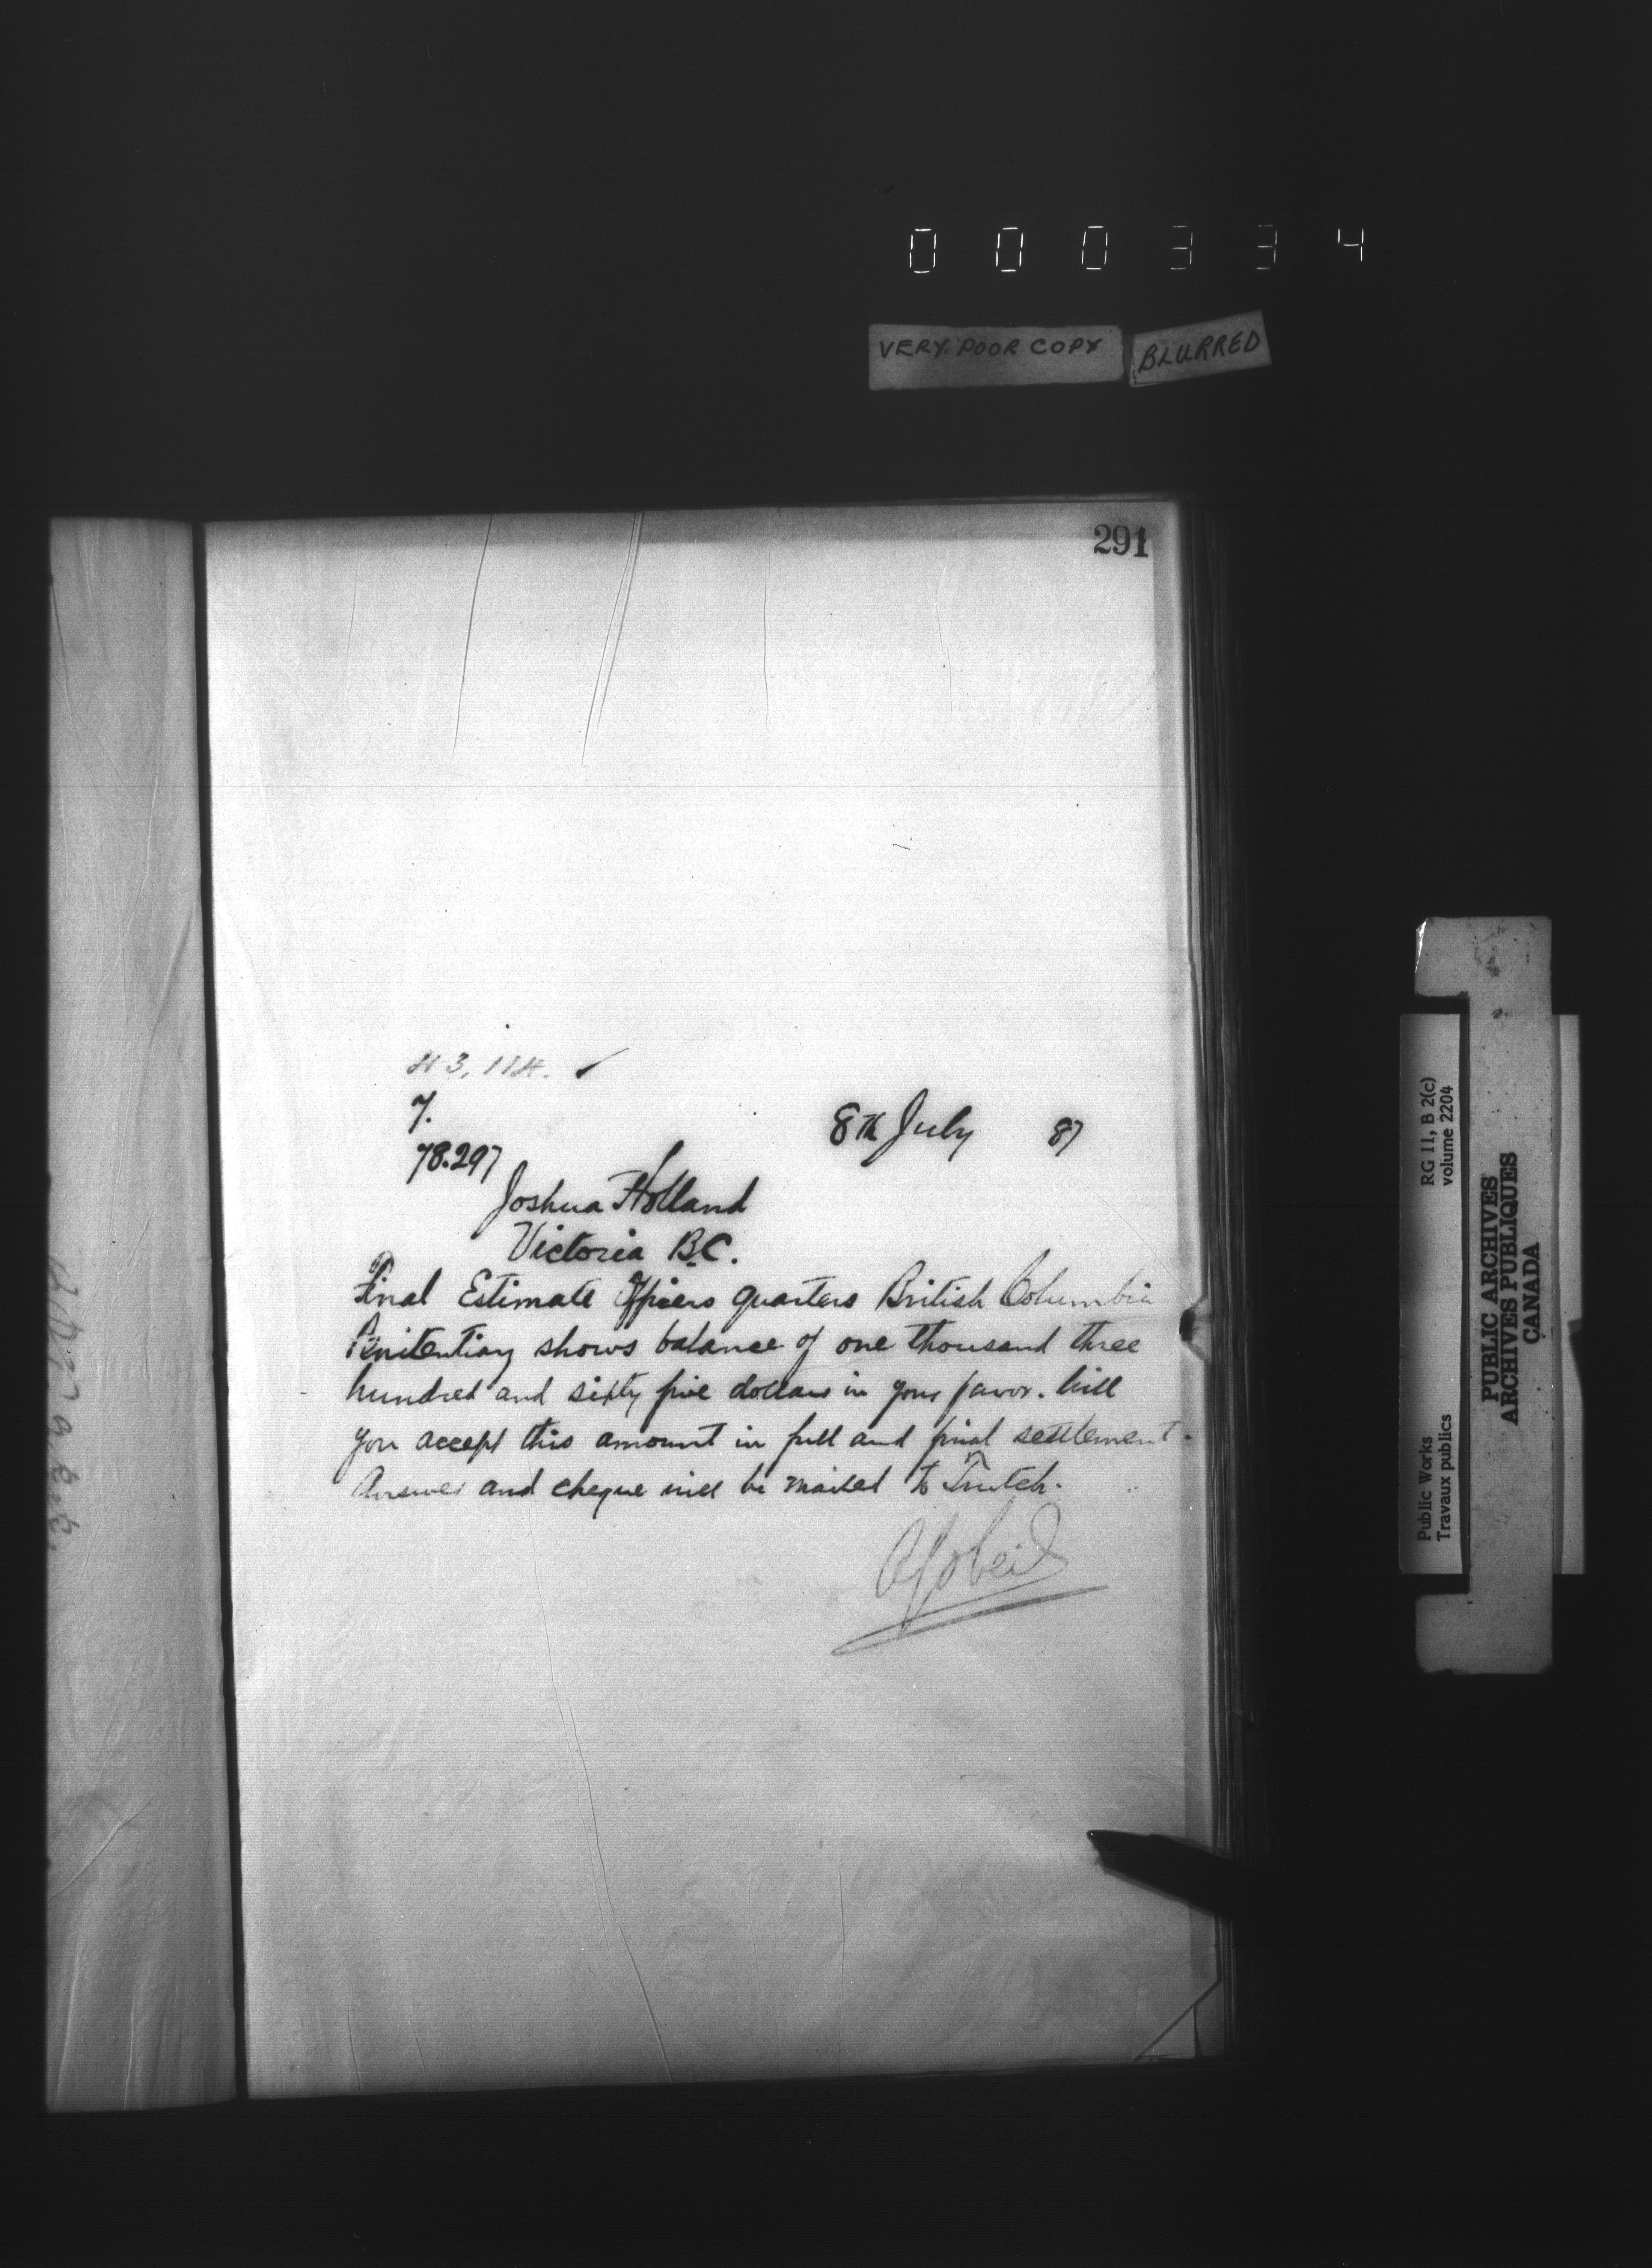 000334
VERY POOR COPY
BLURRED
291
43,114. ✓
7.
78.297
8th July 87
Joshua Holland
Victoria B.C.
Final Estimate Officers quarters British Columbia
Penitentiary shows balance of one thousand three
hundred and sixty five dollars in your favor. Will
you accept this amount in full and final settlement.
Answer and cheque will be mailed to Trutch.
A Gobeil
Public Works
Travaux publics
RG 11, B 2(c)
volume 2204
PUBLIC ARCHIVES
ARCHIVES PUBLIQUES
CANADA